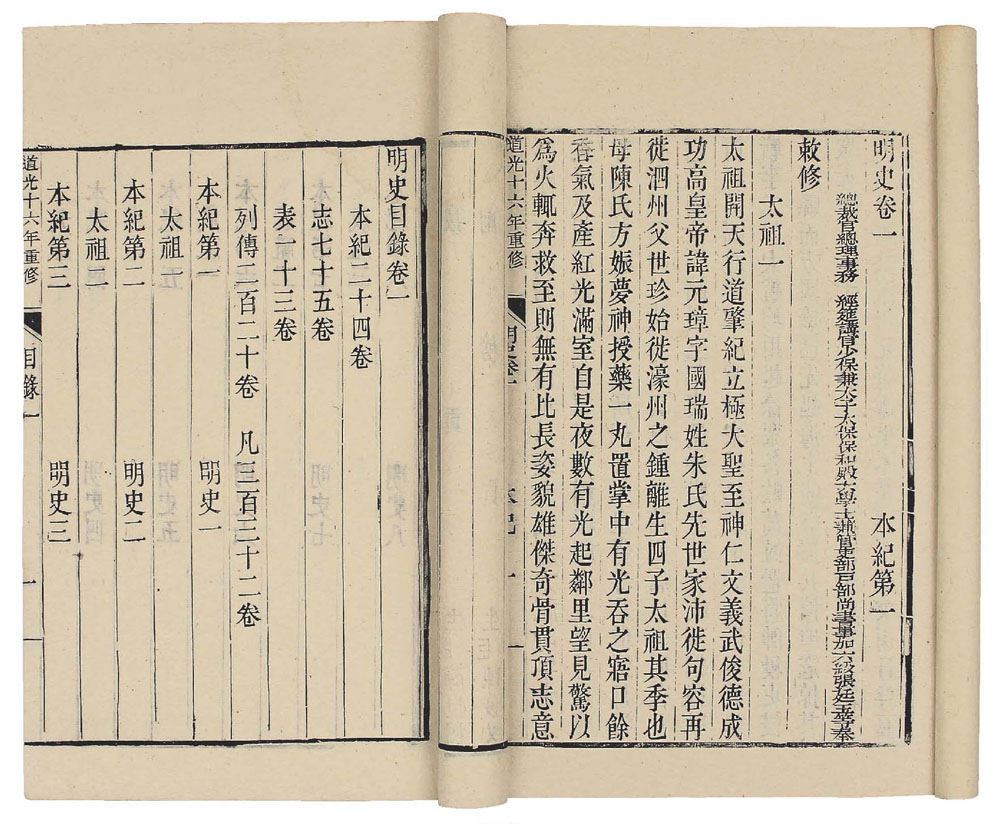 明史卷一　本紀第一
總裁官總理事務　經筵講官少保兼太子太保保和殿大學士兼管吏部戶部尚書事加六級張廷玉等奉
敕修
太祖一
太祖開天行道肇紀立極大聖至神仁文義武俊德成
功高皇帝諱元璋字國瑞姓朱氏先世家沛徙句容再
徙泗州父世珍始徙濠州之鍾離生四子太祖其季也
母陳氏方娠夢神授藥一丸置掌中有光吞之寤口餘
香氣及產紅光滿室自是夜數有光起鄰里望見驚以
為火輒奔救至則無有比長姿貌雄傑奇骨貫頂志意
道光十六年重修　明史卷一　本紀　一
明史目錄卷一
本紀二十四卷
志七十五卷
表一十三卷
列傳二百二十卷　凡三百三十二卷
本紀第一　明史一
太祖一
本紀第二　明史二
太祖二
本紀第三　明史三
道光十六年重修　目錄一　一